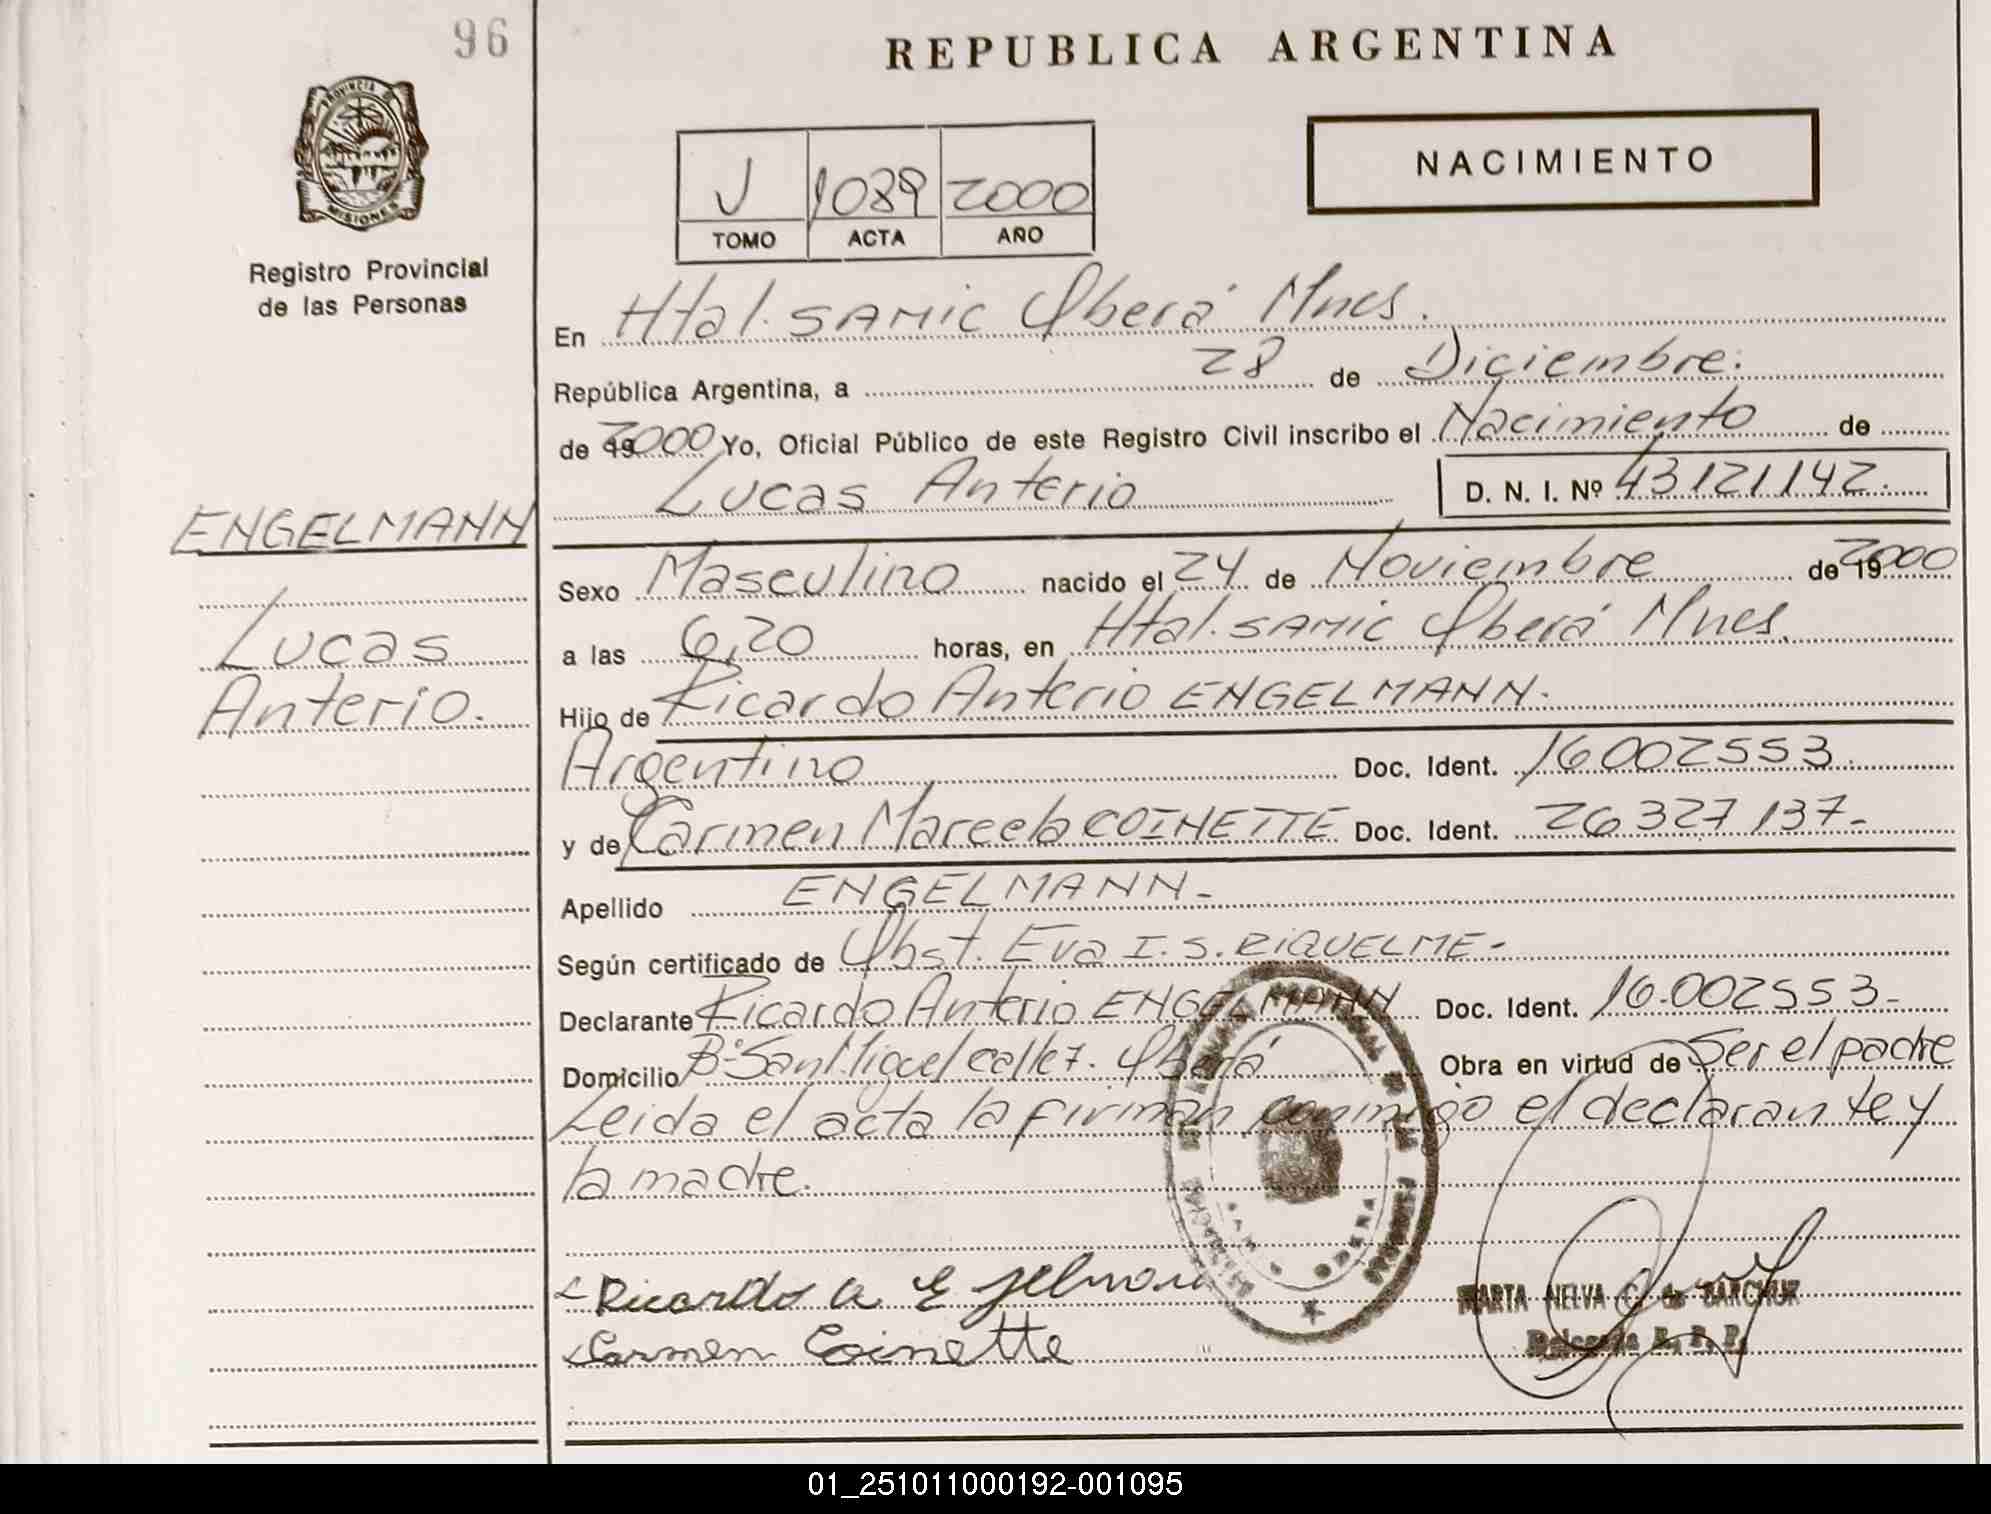 96
REPUBLICA ARGENTINA
PROVINCIA D
MISIONES
Registro Provincial
de las Personas
NACIMIENTO
J 1089 2000
TOMO ACTA AÑO
En Htal. SAMIC Oberá Mnes.
República Argentina, a 28 de Diciembre.
de 192000 Yo, Oficial Público de este Registro Civil inscribo el Nacimiento de
Lucas Anterio D. N. I. Nº 43121142.
ENGELMANN
Lucas
Anterio.
Sexo Masculino nacido el 24 de Noviembre de 192000
a las 6,20 horas, en Htal. SAMIC Oberá Mnes.
Hijo de Ricardo Anterio ENGELMANN.
Argentino Doc. Ident. 16002553.
y de Carmen Marcela COINETTE Doc. Ident. 26327137-
Apellido ENGELMANN-
Según certificado de Obst. Eva I. S. RIQUELME-
Declarante Ricardo Anterio ENGELMANN Doc. Ident. 16.002553-
Domicilio Bº San Miguel calle 7. Oberá Obra en virtud de Ser el padre
Leida el acta la firman conmigo el declarante y
la madre.
Ricardo A Engelmann
Carmen Coinette
MARTA NELVA C. de SARCHUK
Delegada R. P. P.
01_251011000192-001095